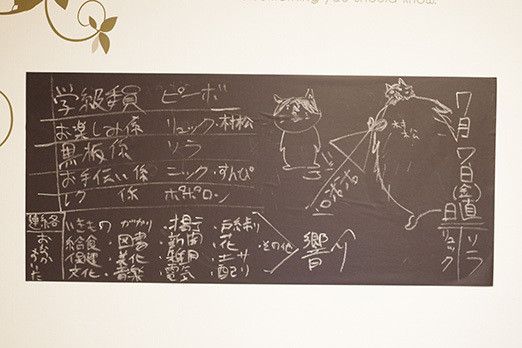 something you should know.
学級委員 ピーボ
お楽しみ係 リュック・村松
黒板係 ソラ
お手伝い係 ニック・すんぴ
レク係 ポポロン
連絡
おなか
すいた
いきもの ・がかり ・掲示 ・戸締り
給食 ・図書 ・新聞 ・花
保健 ・美化 ・雑用 ・エサ
文化 ・音楽 ・電気 ・配り
その他
響
ロボポ
村松
7月7日(金)
日直
ソラ
リュック